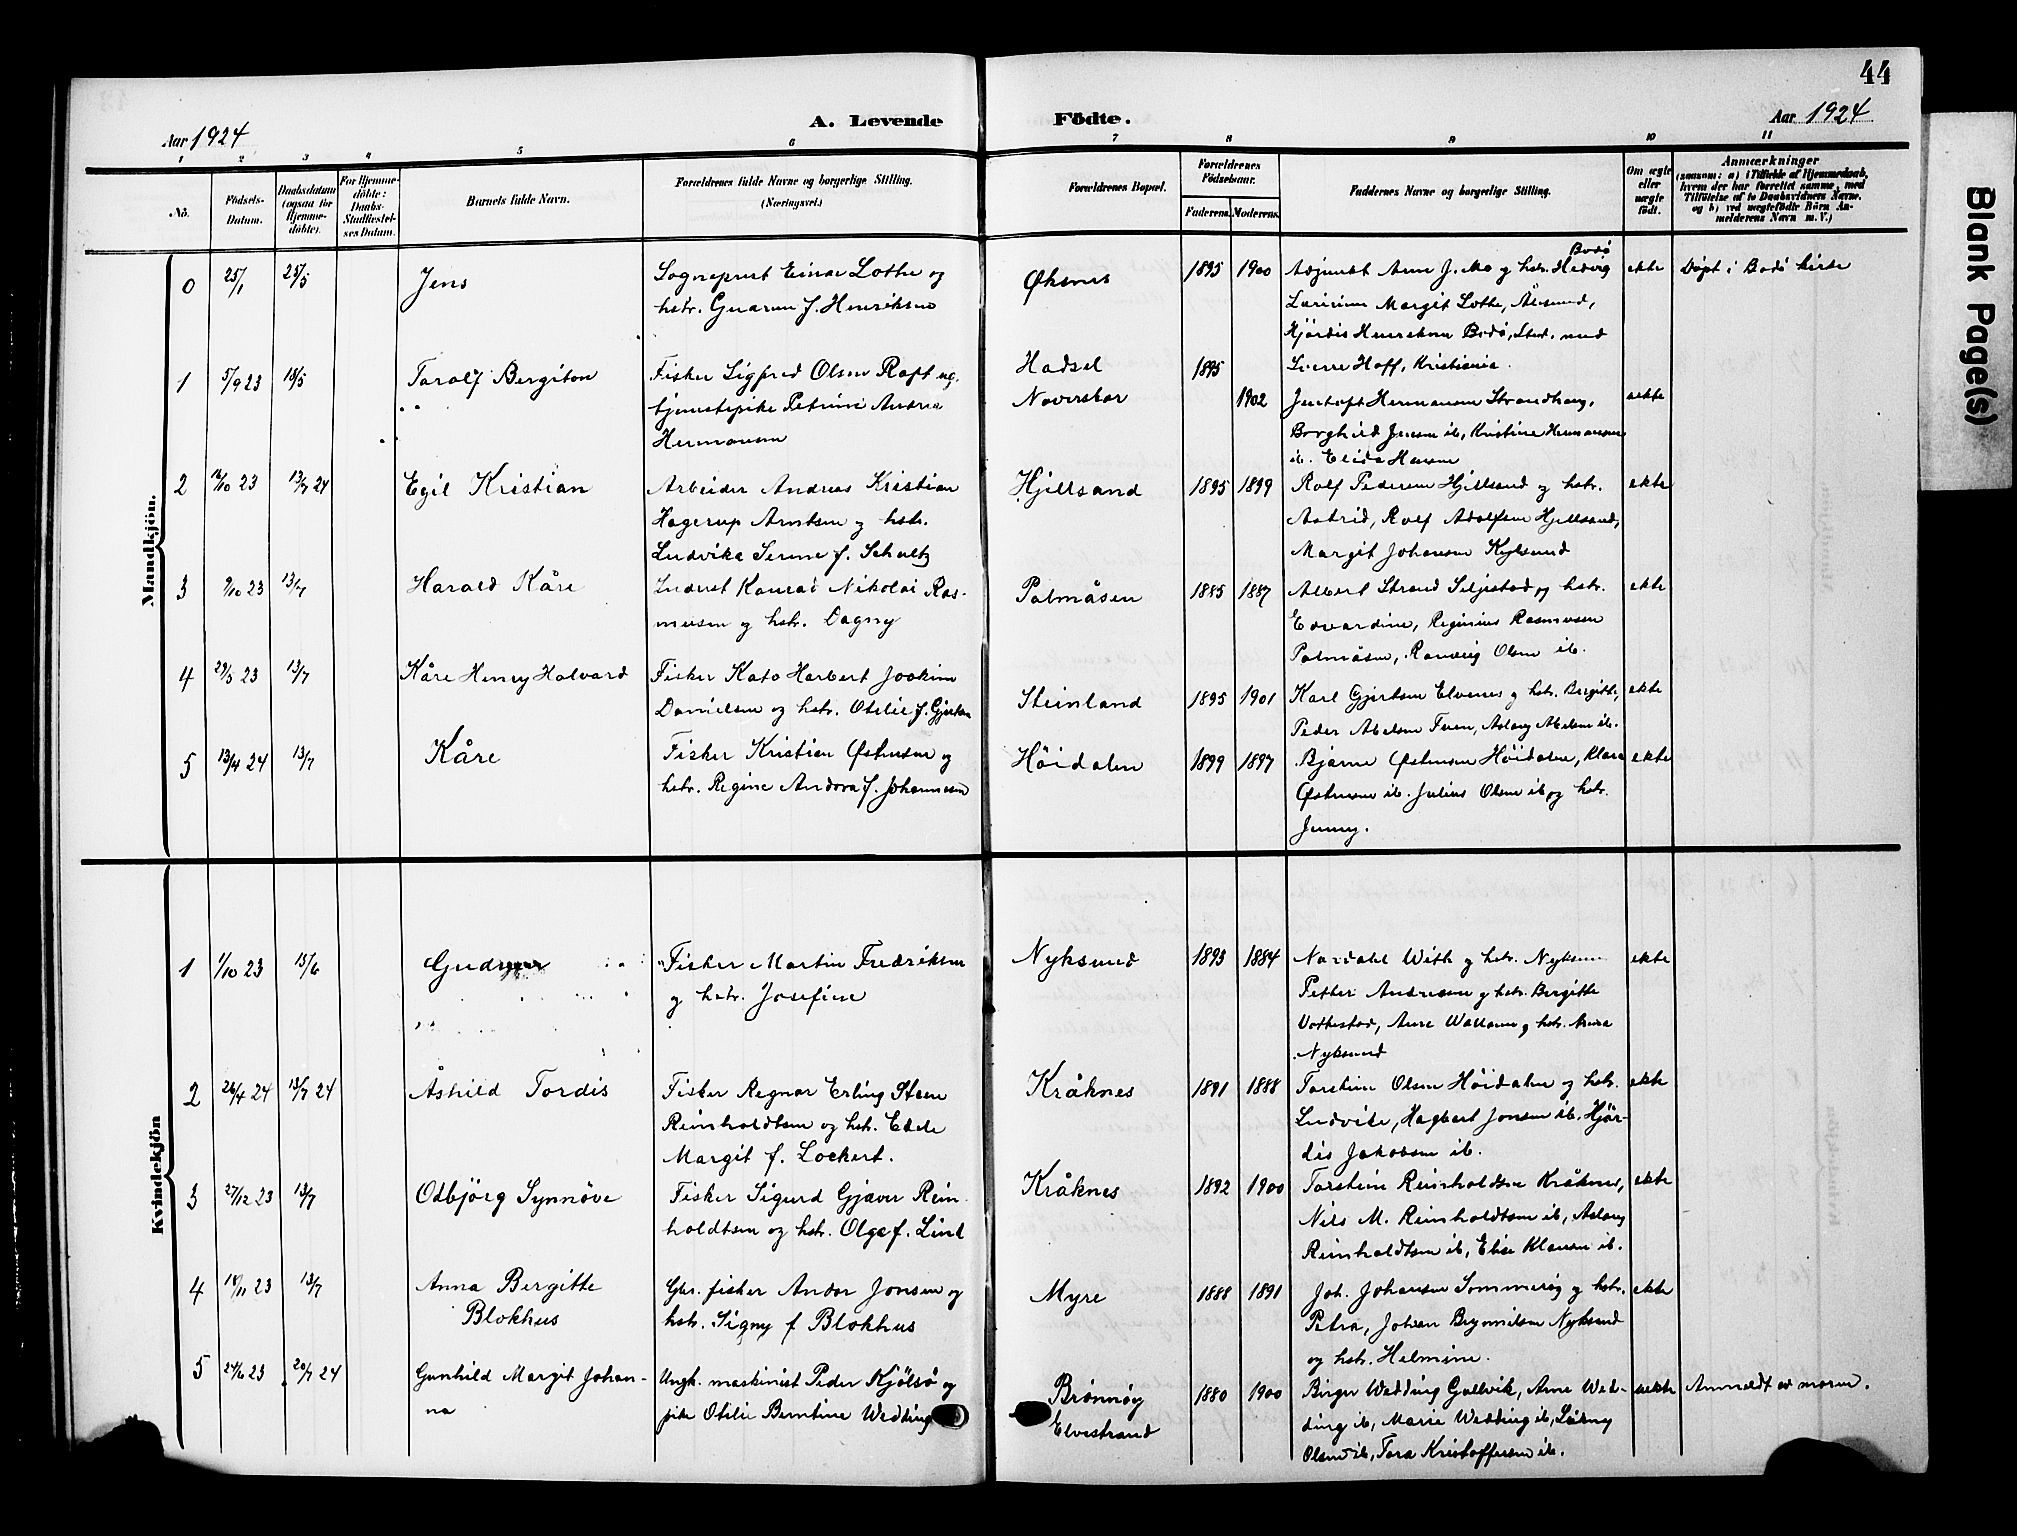 44
Aar 1924
A. Levende Födte.
Aar 1924
1 2 3 4 5 6 7 8 9 10 11
No.
Födsels-Datum.
Daabsdatum (ogsaa for Hjemmedöbte).
For Hjemmedöbte: Daabs-Stadfæstelses Datum.
Barnets fulde Navn.
Forældrenes fulde Navne og borgerlige Stilling. (Næringsvei.)
Forældrenes Bopæl.
Forældrenes Födselsaar.
Faderens. Moderens.
Faddernes Navne og borgerlige Stilling.
Om ægte eller uægte födt.
Anmærkninger
(saasom: a) i Tilfælde af Hjemmedaab, hvem der har forrettet samme, med Tilföielse af to Daabsvidners Navne, og b) ved uægtefödte Börn Anmelderens Navn m. V.)
Mandkjön.
0 25/1 25/5 Jens Sogneprest Einar Lothe og Øksnes 1895 1900 Adjunkt Arne J. Mo og hstr. Hedvig Bodø ekte Døpt i Bodø kirke
hstr. Gudrun f. Henriksen Margit Lothe, Ålesund,
Hjördis Henriksen Bodø, Stud. med
1 5/9 23 18/5 Torolf Bergiton Fisker Sigfred Olsen Raft ug. Hadsel 1895 Sverre Hoff, Kristiania.
tjenestepike Petrine Andrea Noverskar 1902 Jentoft Hermansen Strandhaug, uekte
Hermansen Borghild Jensen ib, Kristine Hermansen
ib. Elida Hansen
2 12/10 23 13/7 24 Egil Kristian Arbeider Andreas Kristian Hjellsand 1895 1899 Rolf Pedersen Hjellsand og hstr. ekte
Hagerup Arntsen og hstr. Astrid, Rolf Adolfsen Hjellsand,
Ludvika Serine f. Schultz Margit Johansen
3 9/10 23 13/7 Harald Kåre Inderst Konrad Nikolai Ras- Polmåsen 1885 1887 Albert Strand Siljestad og hstr. ekte
mussen og hstr. Dagny Edvardine, Reginius Rasmussen
Polmåsen, Ranveig Olsen ib.
4 29/3 23 13/7 Kåre Henry Halvard Fisker Kato Harbert Joakim Steinland 1895 1901 Karl Gjertsen Elvenes og hstr. Bergitte, ekte
Danielsen og hstr. Otilie f. Gjertsen Peder Abelsen Aslaug Abelsen ib.
5 13/4 24 13/7 Kåre Fisker Kristian Østensen og Höidalen 1899 1897 Bjarne Østensen Höidalen, Klara ekte
hstr. Regine Andora f. Johannesen Østensen ib. Julius Olsen ib og hstr.
Jenny.
Kvindekjön
1 1/10 23 15/6 Gudrun Fisker Martin Fredriksen Nyksund 1893 1884 Nordahl With og hstr. Nyksund ekte
og hstr. Josefine Petter Andreasen og hstr. Bergitte
Arne og hstr.
Nyksund
2 26/4 24 13/7 24 Åshild Tordis Fisker Ragnar Erling Steen Kråknes 1891 1888 Torstein Olsen Höidalen og hstr. ekte
Reinholdtsen og hstr. Edele Ludvike, Hagbart Jonsen ib. Hjör-
Margit f. Lockert. dis Jakobsen ib.
3 27/12 23 13/7 Odbjörg Synnöve Fisker Sigurd Gjæver Rein- Kråknes 1892 1900 Torstein Reinholdtsen Kråknes, ekte
holdtsen og hstr. Olga f. Lind Nils M. Reinholdtsen ib, Aslaug
Reinholdtsen ib, Elise Klausen ib.
4 18/11 23 13/7 Anna Bergitte Gbr. fisker Andor Jonsen og Myre 1888 1891 Joh. Johansen Sommeröy og hstr. ekte
Blokhus hstr. Signy f Blokhus Petra, Johan Brynnilsen Nyksund
og hstr. Helmine.
5 24/6 23 20/7 24 Gunhild Margit Johan- Ungk. maskinist Peder Kjölsö og Brönnöy 1880 1900 Birger Wedding Gullvik, Arne Wed- uekte Anmeldt av moren.
na pike Otilie Berntine Wedding Elvestrand ding ib, Marie Wedding ib,
Olsen ib, Tora Kristoffersen ib.
Blank Page(s)